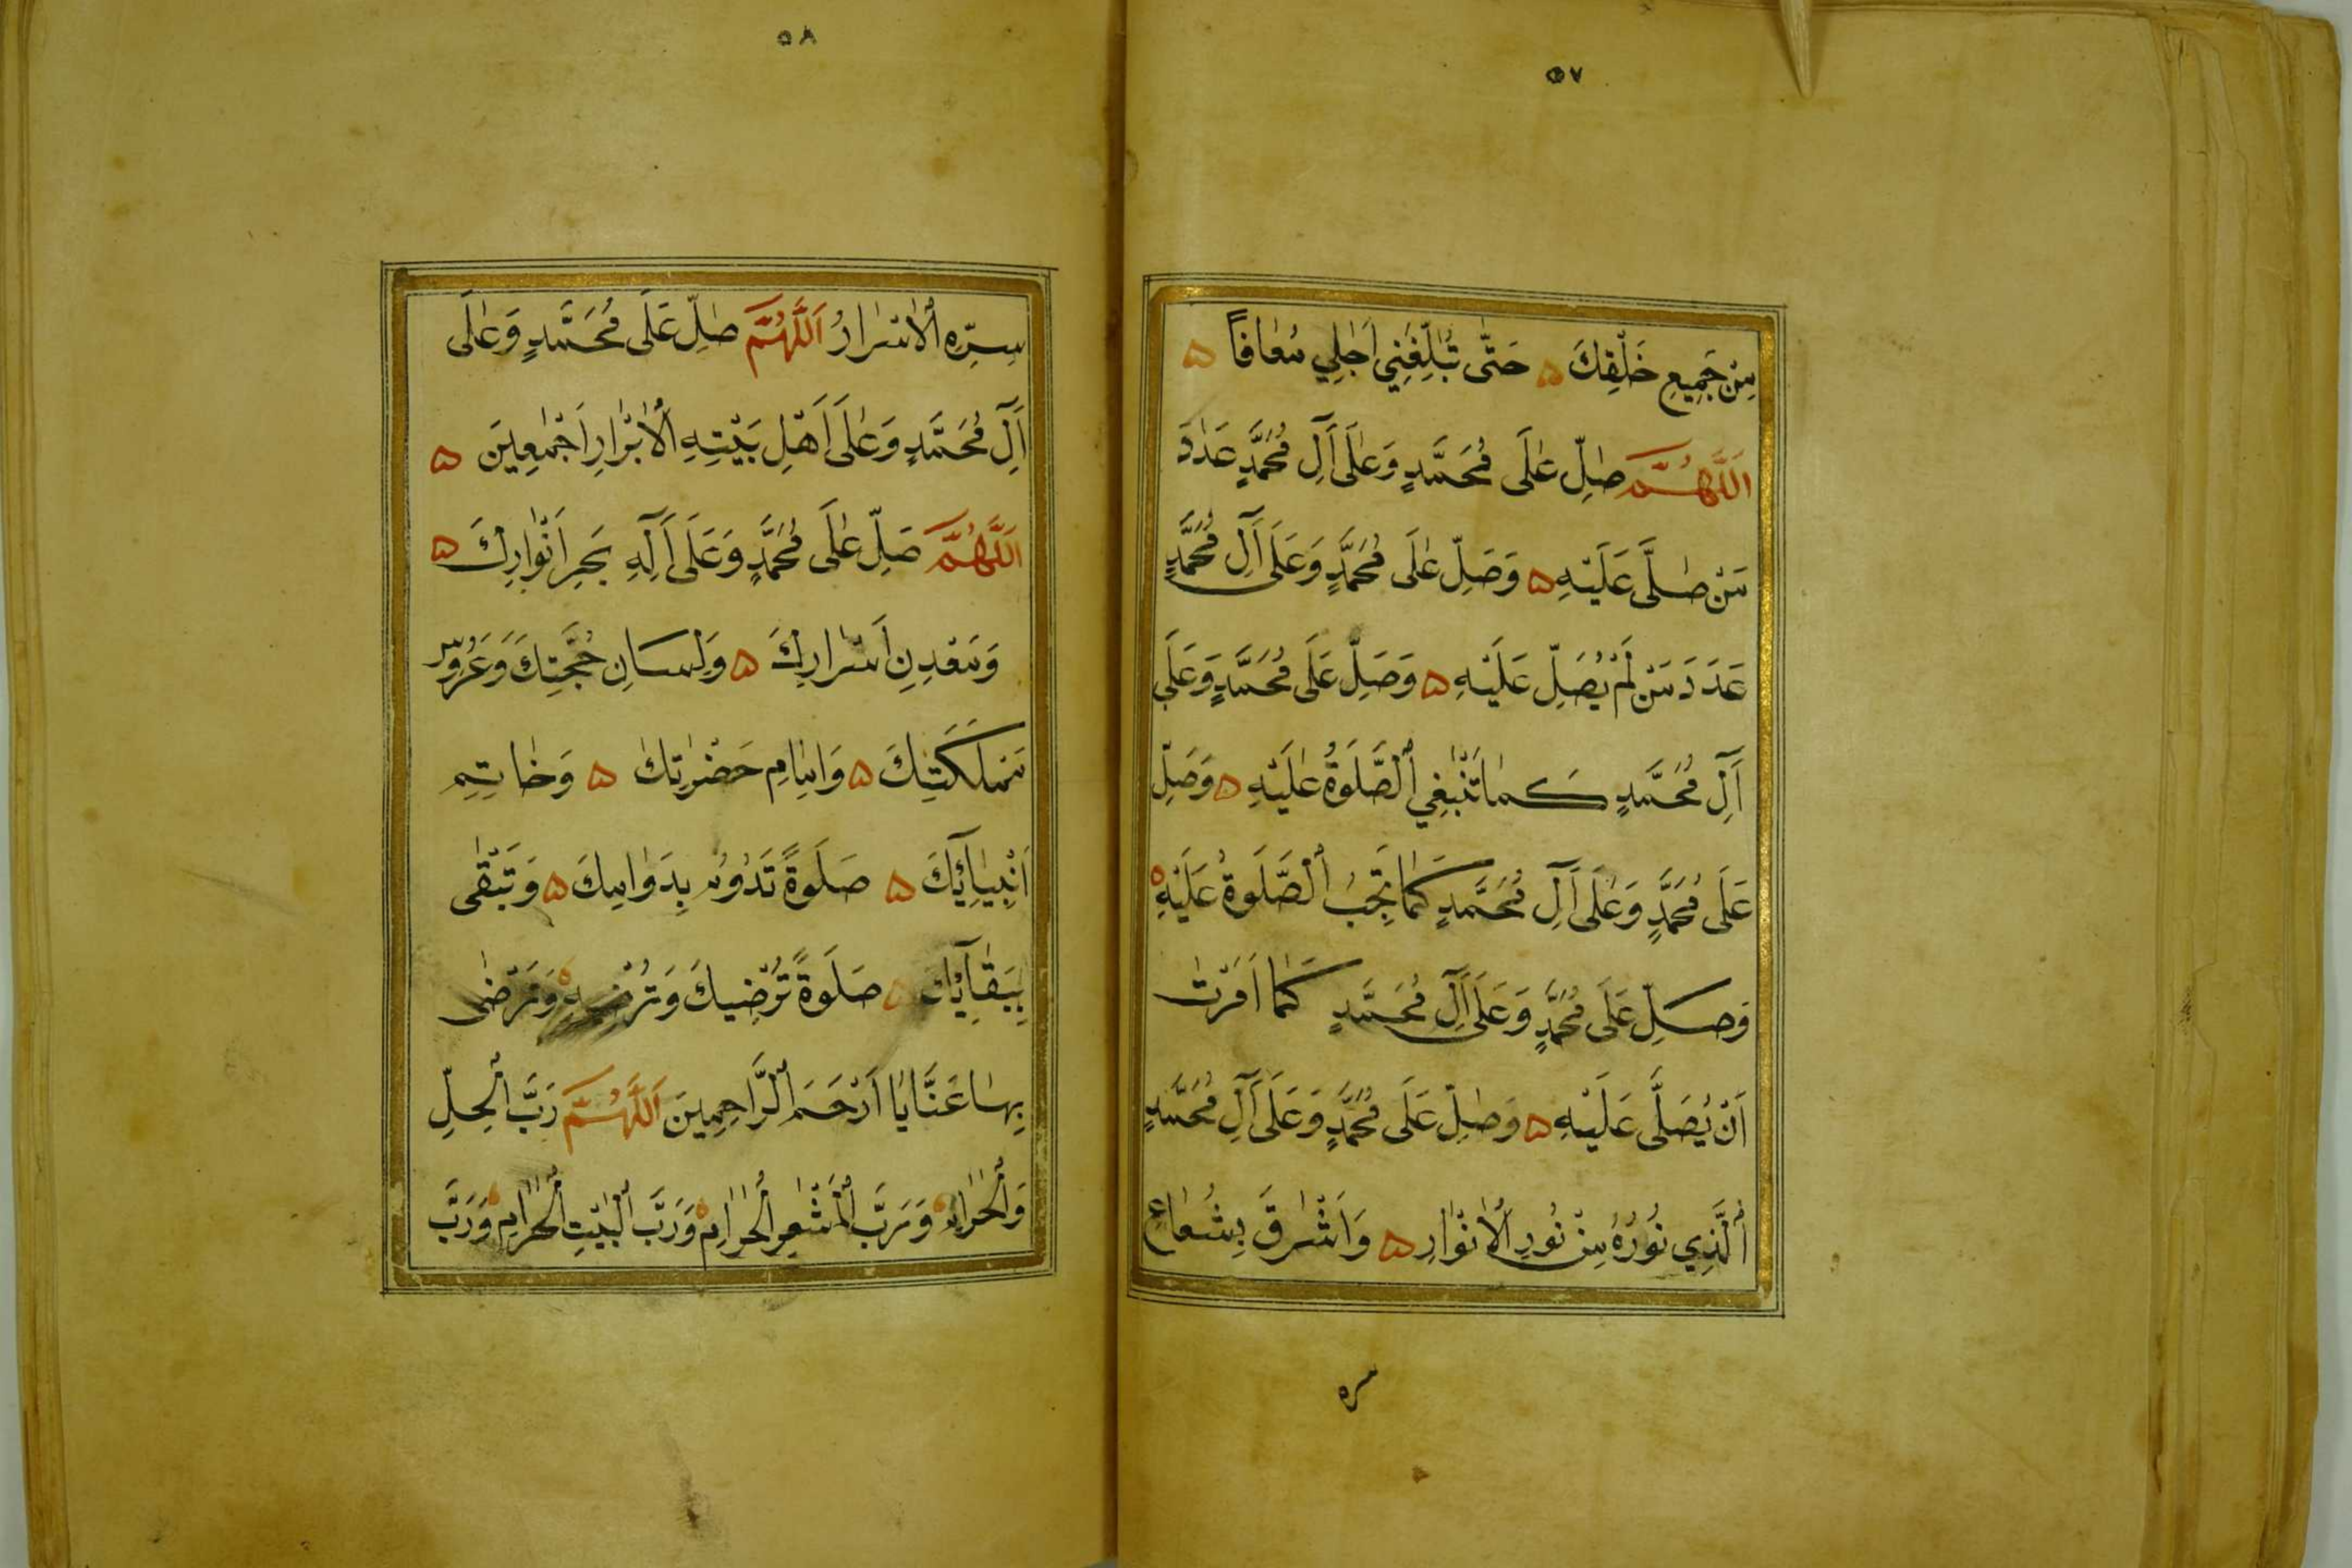 ٥٧
مِنْ جَمِيعِ خَلْقِكَ ۵ حَتّٰى تُبَلِّغَنِي اَجَلِي مُعَافاً ۵
اَللّٰهُمَّ صَلِّ عَلَى مُحَمَّدٍ وَعَلَى اٰلِ مُحَمَّدٍ عَدَدَ
مَنْ صَلَّى عَلَيْهِ ۵ وَصَلِّ عَلَى مُحَمَّدٍ وَعَلَى اٰلِ مُحَمَّدٍ
عَدَدَ مَنْ لَمْ يُصَلِّ عَلَيْهِ ۵ وَصَلِّ عَلَى مُحَمَّدٍ وَعَلَى
اٰلِ مُحَمَّدٍ كَمَا تَنْبَغِي الصَّلَوةُ عَلَيْهِ ۵ وَصَلِّ
عَلَى مُحَمَّدٍ وَعَلَى اٰلِ مُحَمَّدٍ كَمَا تَجِبُ الصَّلَوةُ عَلَيْهِ ۵
وَصَلِّ عَلَى مُحَمَّدٍ وَعَلَى اٰلِ مُحَمَّدٍ كَمَا اَمَرْتَ
اَنْ يُصَلَّى عَلَيْهِ ۵ وَصَلِّ عَلَى مُحَمَّدٍ وَعَلَى اٰلِ مُحَمَّدٍ
اَلَّذِي نُورُهُ مِنْ نُورِ الْاَنْوَارِ ۵ وَاَشْرَقَ بِشُعَاعِ
سره
٥٨
سِرِّهِ الْاَسْرَارُ اَللّٰهُمَّ صَلِّ عَلَى مُحَمَّدٍ وَعَلَى
اٰلِ مُحَمَّدٍ وَعَلَى اَهْلِ بَيْتِهِ الْاَبْرَارِ اَجْمَعِينَ ۵
اَللّٰهُمَّ صَلِّ عَلَى مُحَمَّدٍ وَعَلَى اٰلِهِ بَحْرِ اَنْوَارِكَ ۵
وَمَعْدِنِ اَسْرَارِكَ ۵ وَلِسَانِ حُجَّتِكَ وَعَرُوسِ
مَمْلَكَتِكَ ۵ وَاِمَامِ حَضْرَتِكَ ۵ وَخَاتِمِ
اَنْبِيَائِكَ ۵ صَلَوةً تَدُومُ بِدَوَامِكَ ۵ وَتَبْقَى
بِبَقَائِكَ ۵ صَلَوةً تُرْضِيكَ وَتُرْضِيهِ ۵ وَتَرْضَى
بِهَا عَنَّا يَا اَرْحَمَ الرَّاحِمِينَ اَللّٰهُمَّ رَبَّ الْحِلِّ
وَالْحَرَامِ ۵ وَرَبَّ الْمَشْعَرِ الْحَرَامِ ۵ وَرَبَّ الْبَيْتِ الْحَرَامِ ۵ وَرَبَّ